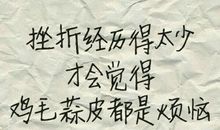 挫折经历得太少
才会觉得
鸡毛蒜皮都是烦恼